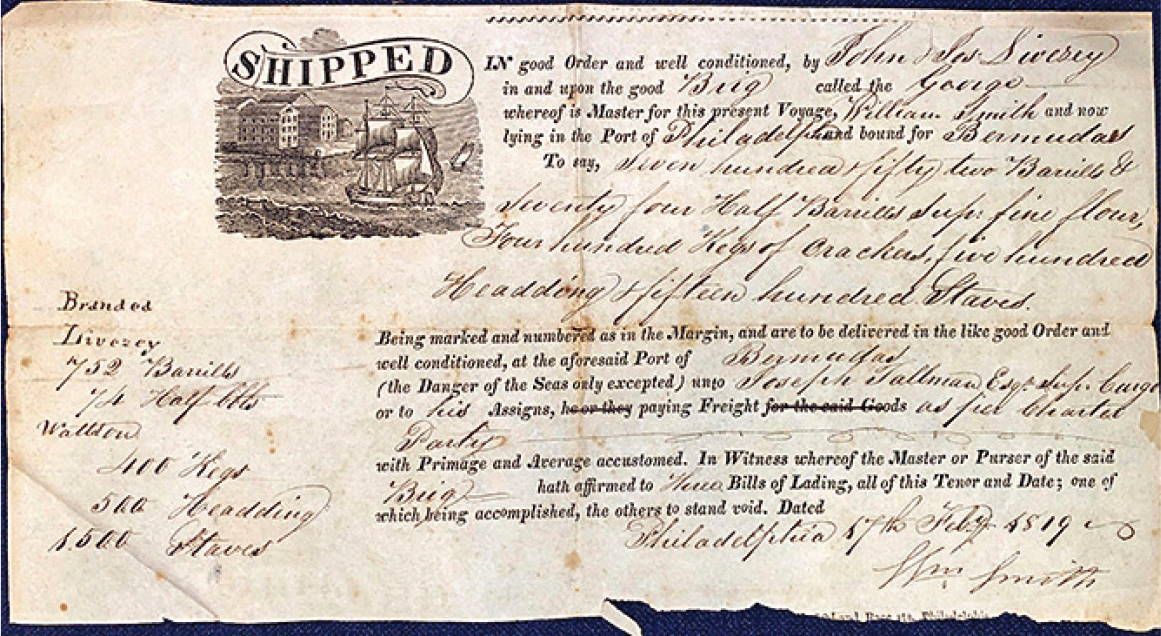 SHIPPED
IN good Order and well conditioned, by John & Jos Liverey
in and upon the good Brig called the George
whereof is Master for this present Voyage, William Smith and now
lying in the Port of Philadelphia and bound for Bermudas
To say, Seven hundred & fifty two Barrills &
Seventy four Half Barrills Supr fine flour,
Four hundred Kegs of Crackers, five hundred
Headding & fifteen hundred Staves.
Branded
Liverey
752 Barrills
74 Half bbls
Wattson
400 Kegs
500 Headding
1500 Staves
Being marked and numbered as in the Margin, and are to be delivered in the like good Order and
well conditioned, at the aforesaid Port of Bermudas
(the Danger of the Seas only excepted) unto Joseph Tallman Esqr Supr Cargo
or to his Assigns, he or they paying Freight for the said Goods as per Charter
Party
with Primage and Average accustomed. In Witness whereof the Master or Purser of the said
Brig hath affirmed to Three Bills of Lading, all of this Tenor and Date; one of
which being accomplished, the others to stand void. Dated
Philadelphia 17th Feby 1819
Wm Smith
Philadelphia